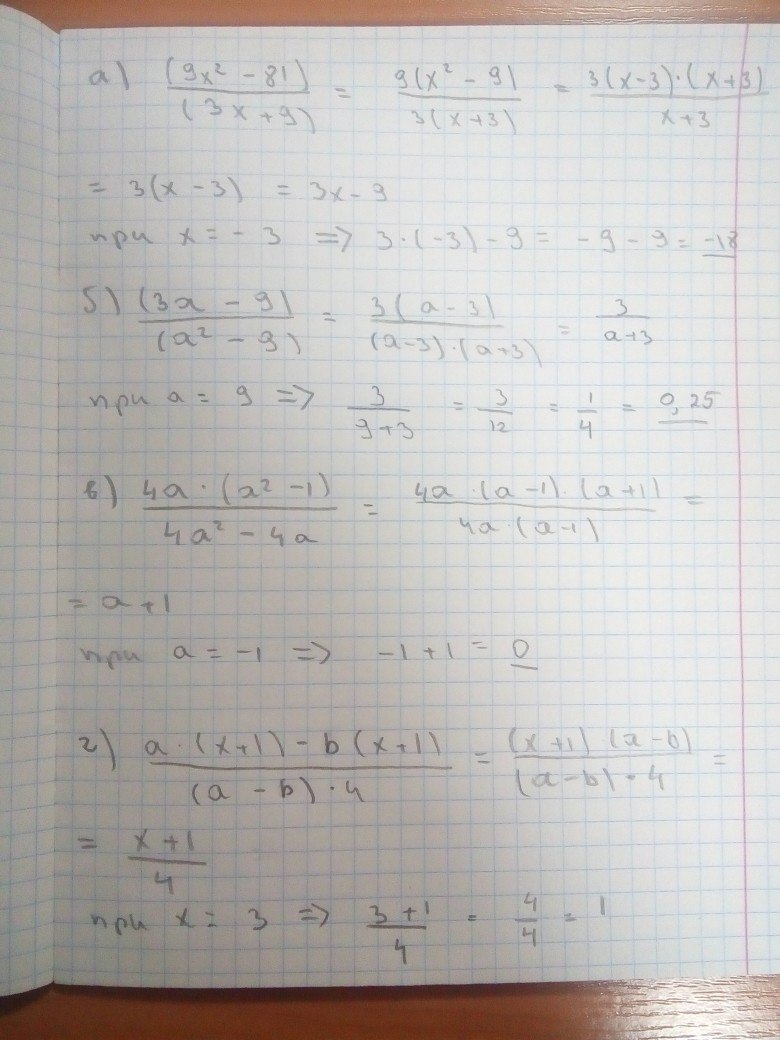 а) (9x² - 81)/(3x + 9) = 9(x² - 9)/3(x+3) = 3(x-3)·(x+3)/x+3
= 3(x - 3) = 3x - 9
при x = - 3 => 3·(-3) - 9 = -9 - 9 = -18
б) (3a - 9)/(a² - 9) = 3(a - 3)/(a-3)·(a+3) = 3/a+3
при a = 9 => 3/9+3 = 3/12 = 1/4 = 0,25
в) 4a·(a² - 1)/4a² - 4a = 4a·(a-1)·(a+1)/4a·(a-1) =
= a + 1
при a = -1 => -1 + 1 = 0
г) a·(x+1) - b(x+1)/(a - b)·4 = (x+1)(a-b)/(a-b)·4 =
= x + 1/4
при x = 3 => 3+1/4 = 4/4 = 1